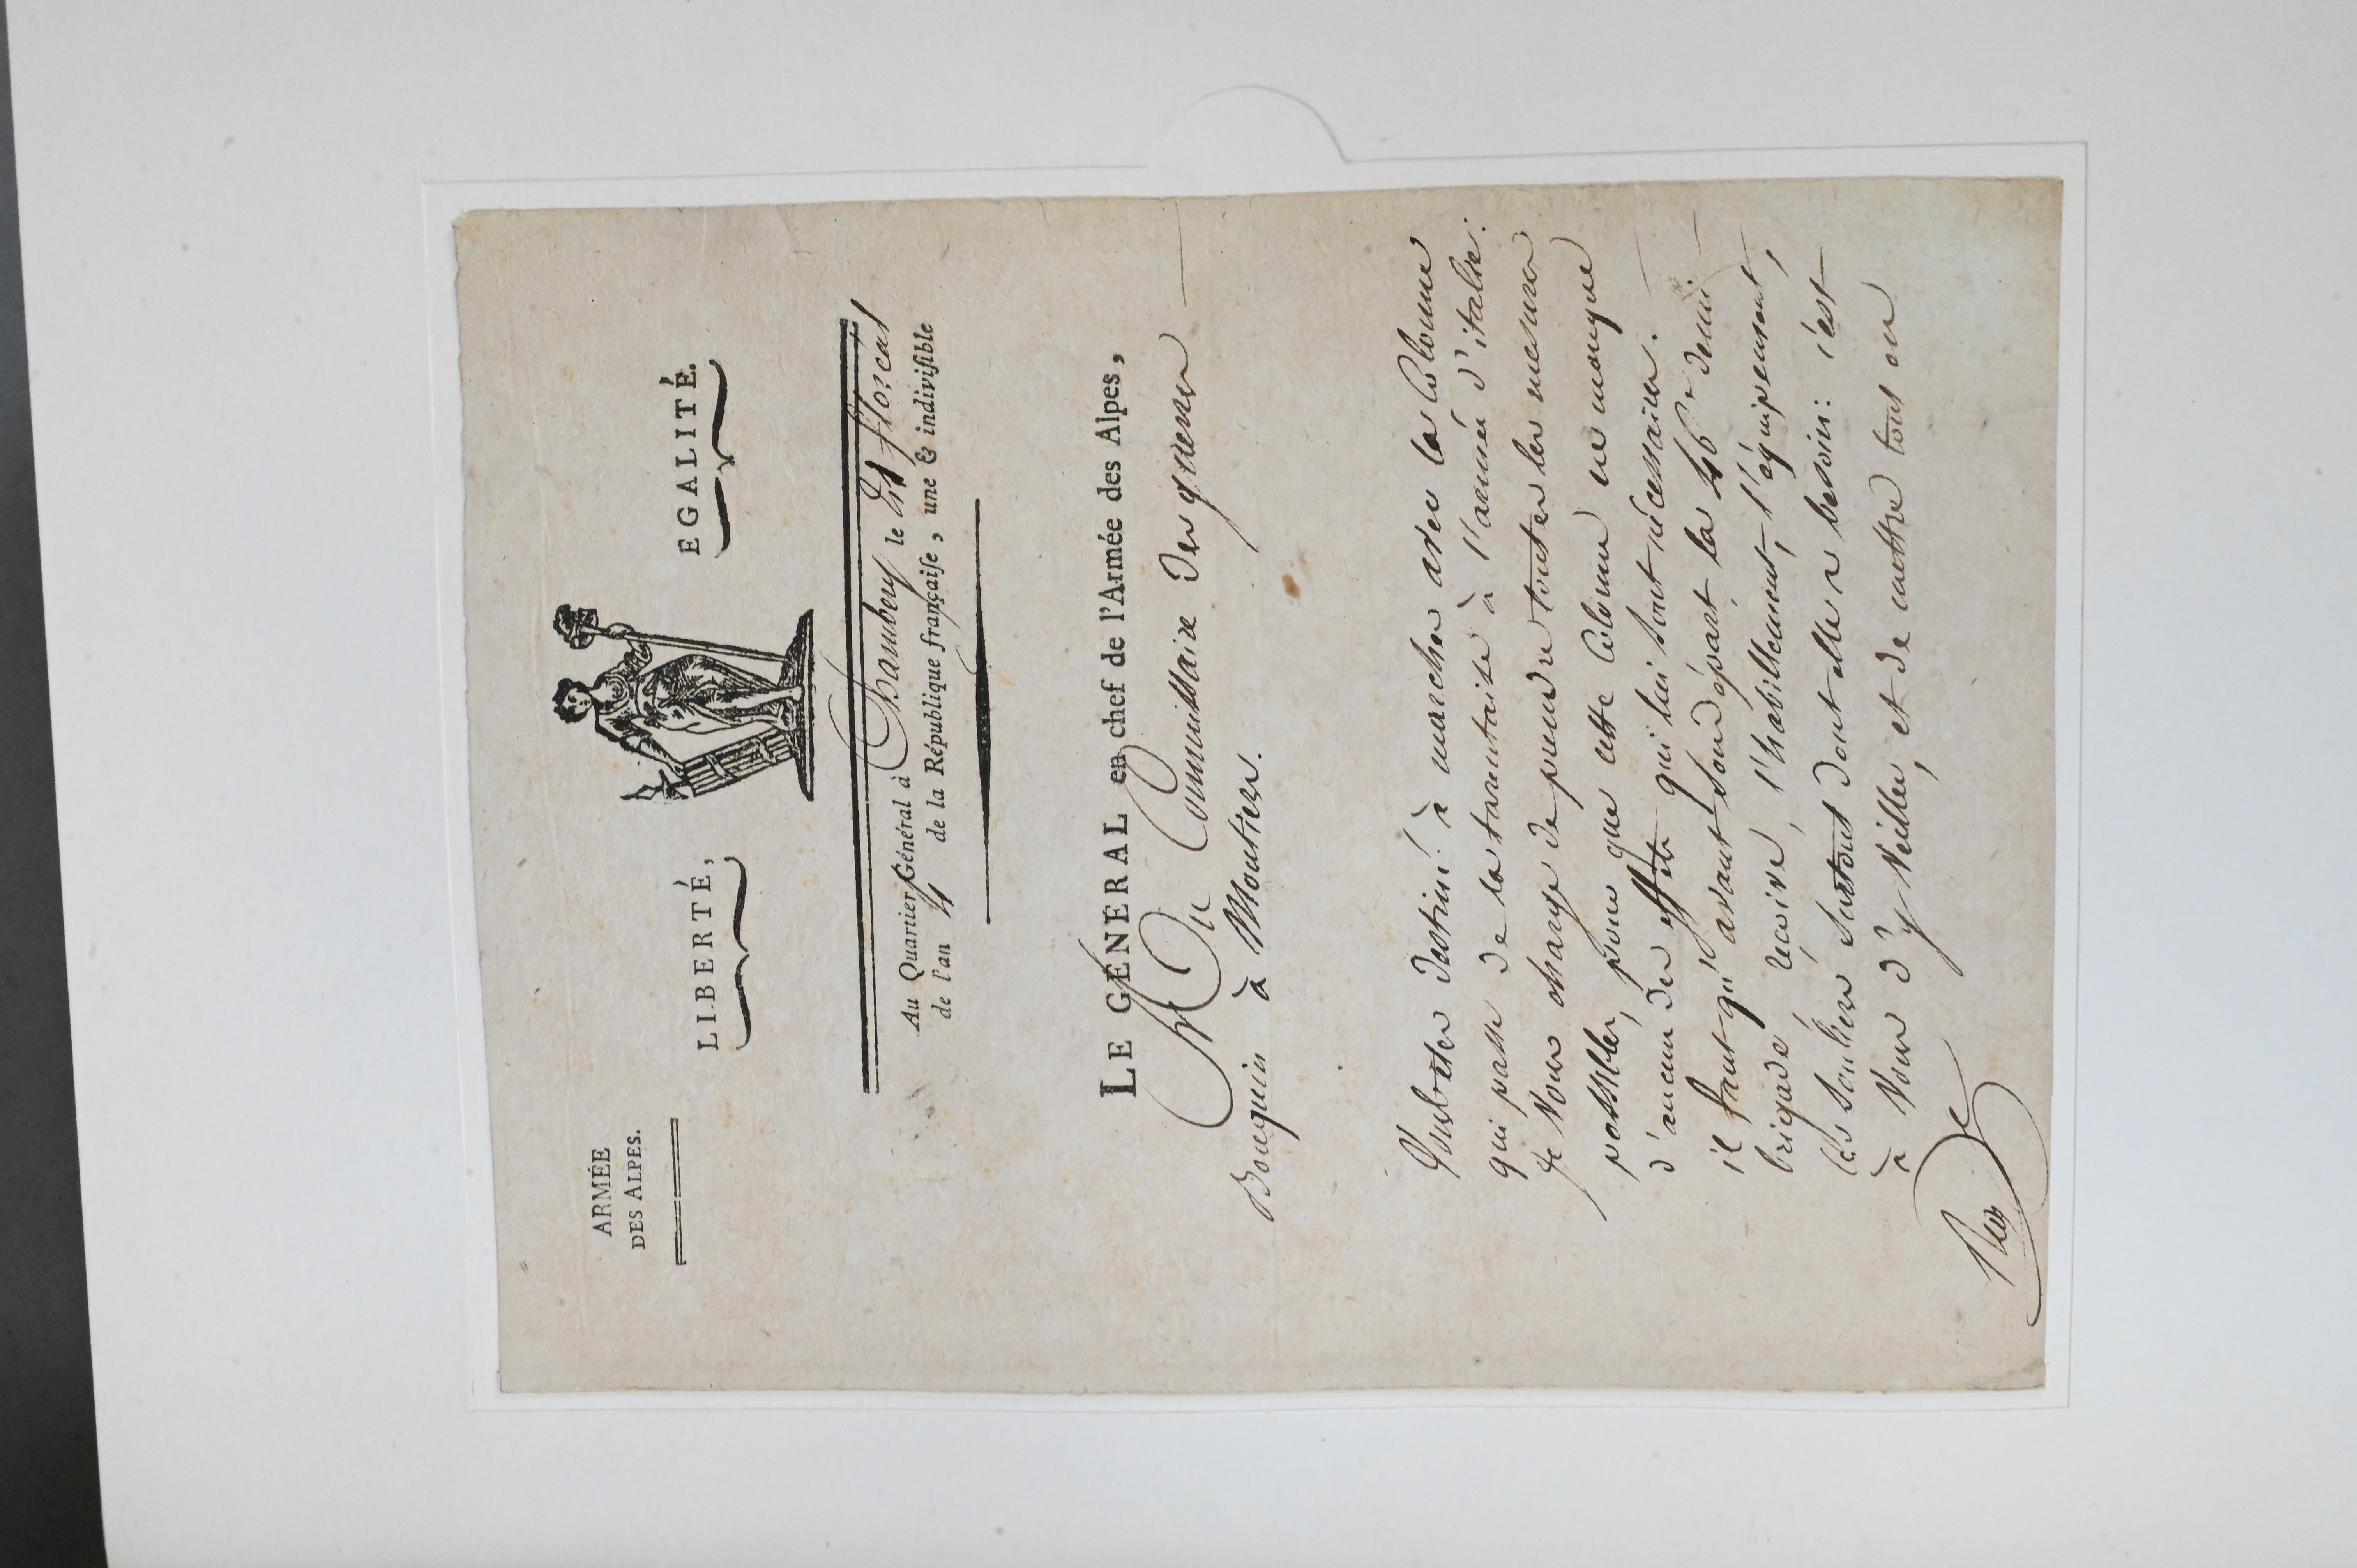 ARMÉE
DES ALPES.
LIBERTÉ, EGALITÉ.
Au Quartier Général à Chambery le floréal
de l'an 4 de la République françaiſe, une & indiviſible
LE GÉNÉRAL en chef de l'Armée des Alpes,
Au Commissaire des guerres
à Moutiers.
Vous êtes destiné à marcher avec la Colonne
qui passe de la tarentaise à l'armée d'italie:
je vous charge de prendre toutes les mesures
possibles, pour que cette Colonne ne manque
d'aucun des effets qui lui sont nécessaires.
il faut qu'avant son départ la 46e demi
brigade reçoive, l'habillement, l'équipement,
les souliers surtout dont elle a besoin: c'est
à vous d'y veiller, et de mettre tout en